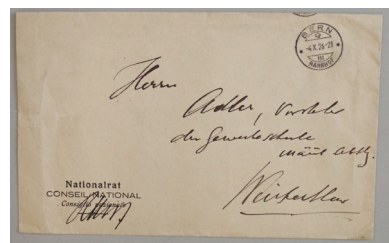 BERN
4.X.26-21
BAHNHOF
Herrn
Adler, Vorsteher
der Gewerbeschule
männl. Abtlg.
Winterthur
Nationalrat
CONSEIL NATIONAL
Consiglio nazionale